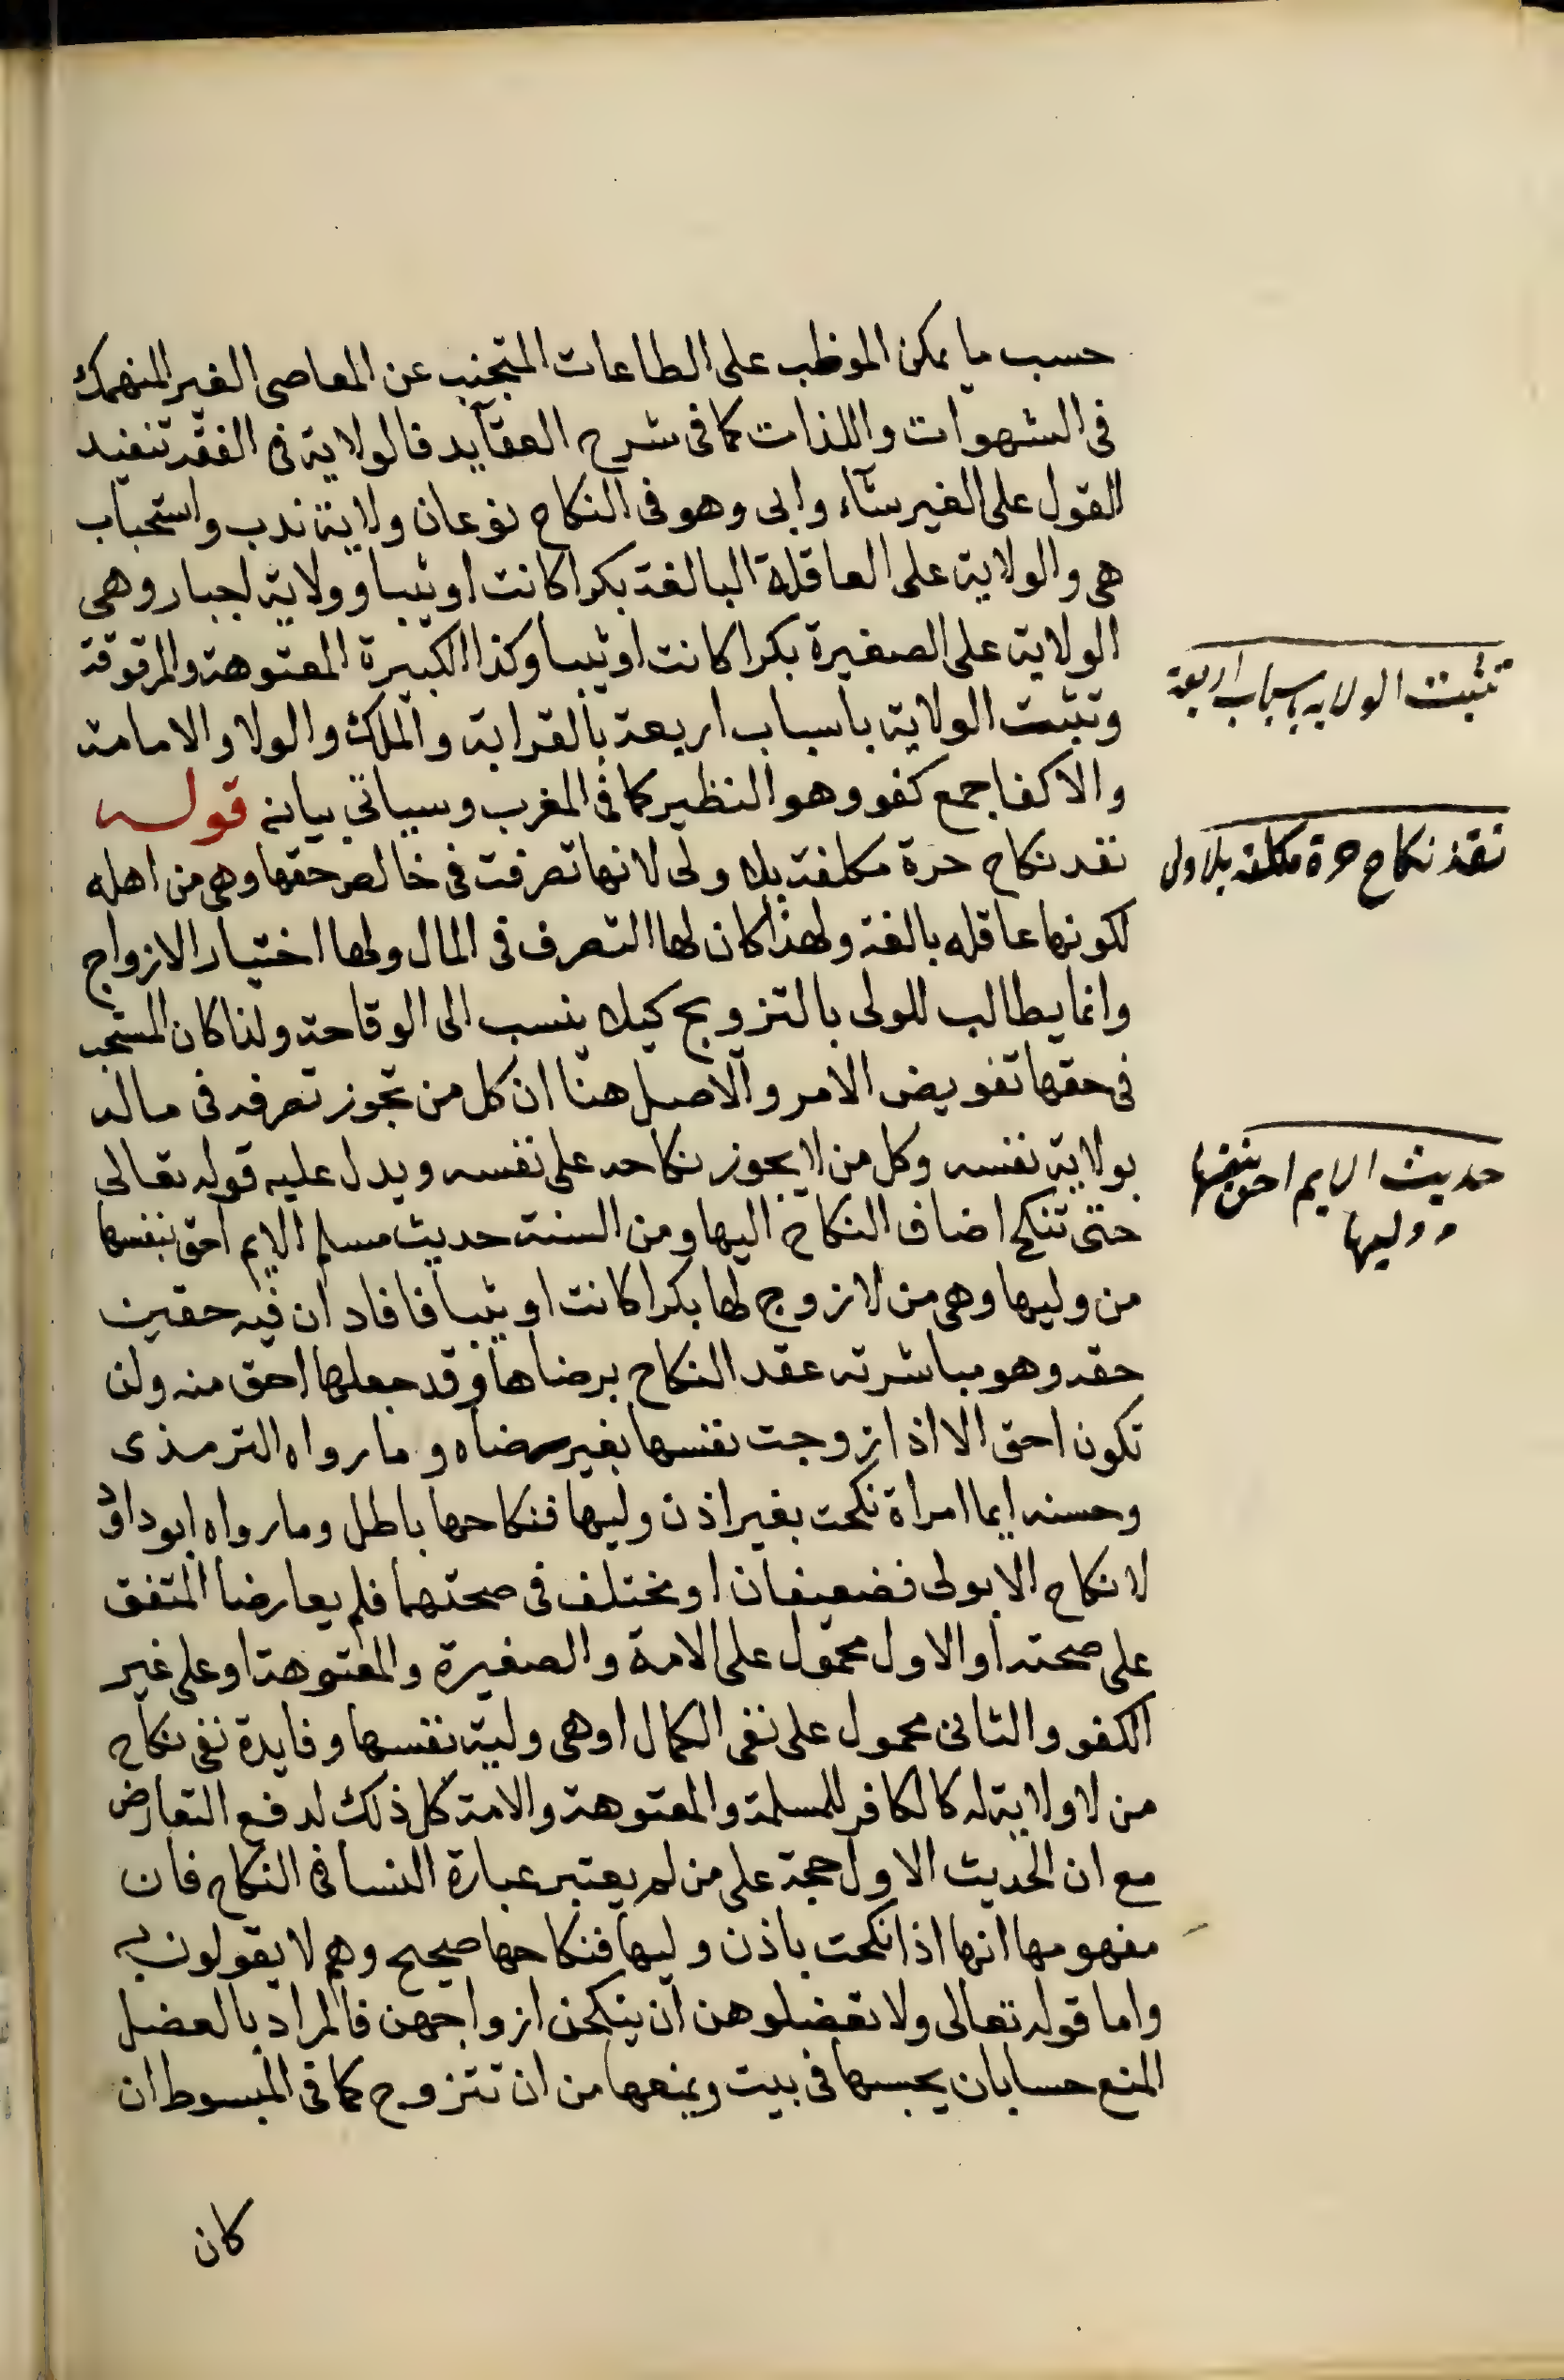 حسب ما يمكن الموظب على الطاعات المتجنب عن المعاصى الغير المنهمك
فى الشهوات واللذات كما فى شرح العقآيد فالولاية فى الفقه تنفيذ
القول على الغير شآء وابى وهو فى النكاح نوعان ولاية ندب واستحباب
هى والولاية على العاقلة البالغة بكرا كانت او ثيبا وولاية اجبار وهى
الولاية على الصغيرة بكرا كانت او ثيبا وكذا الكبيرة المعتوهة والمرقوقة
وتثبت الولاية باسباب اربعة بالقرابة والملك والولا والامامة
والاكفا جمع كفو وهو النظير كما فى المغرب وسياتى بيانه قوله
نفد نكاح حرة مكلفة بلا ولى لانها تصرفت فى خالص حقها وهى من اهله
لكونها عاقله بالغة ولهذا كان لها التصرف فى المال ولها اختيار الازواج
وانما يطالب للولى بالتزويج كيلا ينسب الى الوقاحة ولذا كان المستحب
فى حقها تفويض الامر والاصل هنا ان كل من تجوز تصرفه فى ماله
بولاية نفسه وكل من لا يجوز نكاحه على نفسه ويدل عليه قوله تعالى
حتى تنكح اضاف النكاح اليها ومن السنة حديث مسلم الايم احق بنفسها
من وليها وهى من لا زوج لها بكرا كانت او ثيبا فافاد ان فيه حقين
حقه وهو مباشرته عقد النكاح برضاها وقد جعلها احق منه ولن
تكون احق الا اذا زوجت نفسها بغير رضاه وما رواه الترمذى
وحسنه ايما امراة نكحت بغير اذن وليها فنكاحها باطل وما رواه ابو داؤد
لا نكاح الا بولى فضعيفان او مختلف فى صحتهما فلم يعارضا المتفق
على صحته او الاول محمول على الامة والصغيرة والمعتوهة او على غير
الكفو والثانى محمول على نفى الكمال او هى ولية نفسها وفايدة نفى نكاح
من لا ولاية له كالكافر للمسلمة والمعتوهة والامة كل ذلك لدفع التعارض
مع ان الحديث الاول حجة على من لم يعتبر عبارة النسا فى النكاح فان
مفهومها انها اذا نكحت باذن وليها فنكاحها صحيح وهم لا يقولون به
واما قوله تعالى ولا تعضلوهن ان ينكحن ازواجهن فالمراد بالعضل
المنع حسا بان يحبسها فى بيت ويمنعها من ان تتزوج كما فى المبسوط ان
كان
تثبت الولايه باسباب اربعة
نفذ نكاح حرة مكلفة بلا ولى
حديث الايم احق بنفسها
من وليها